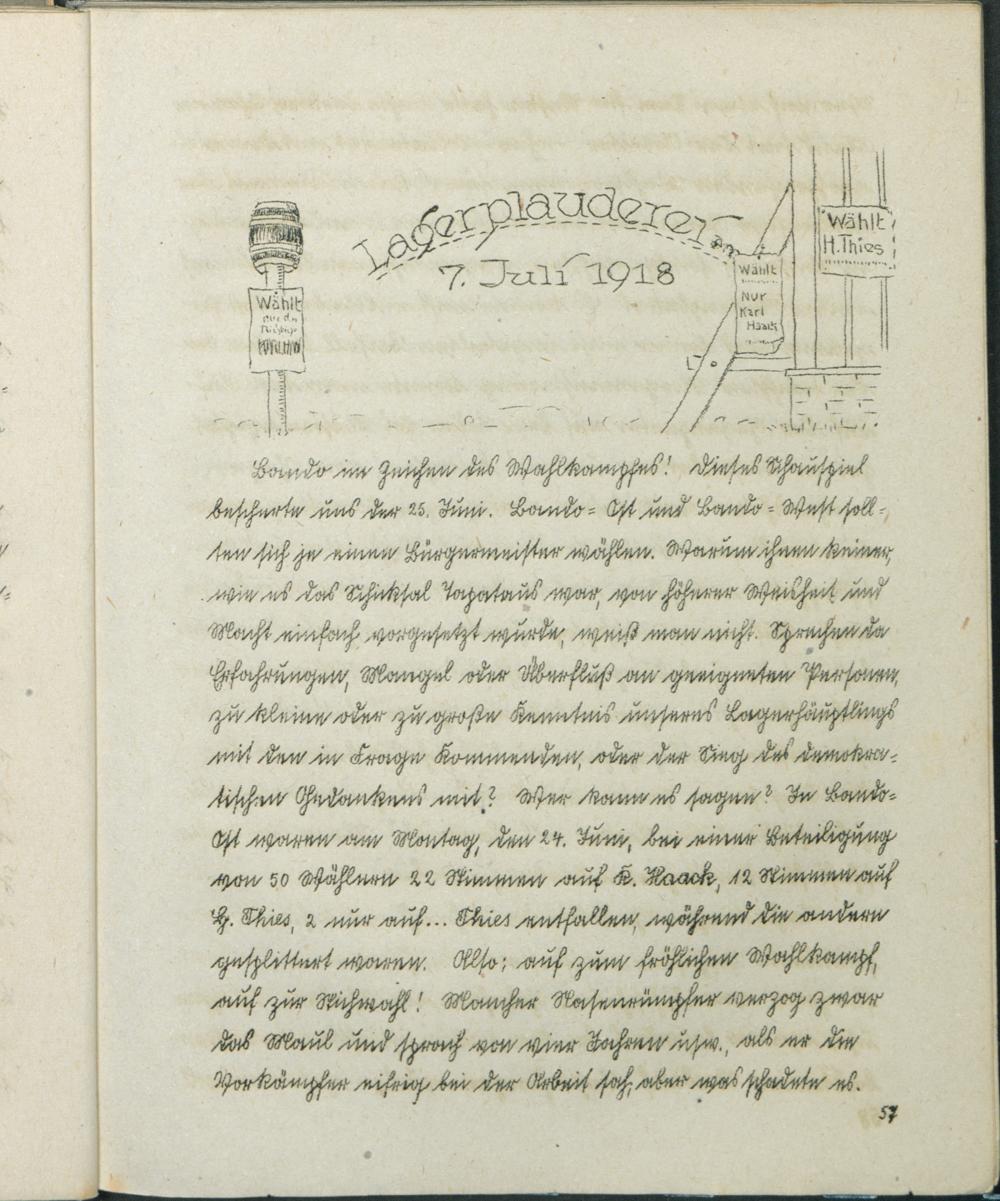 Lagerplauderei am
7. Juli 1918
Wählt
Wählt
H. Thies
Wählt
Nur
Karl
Haack
Bando im Zeichen des Wahlkampfes! Dieses Schauspiel
bescherte uns der 25. Juni. Bando=Ost und Bando=West soll=
ten sich je einen Bürgermeister wählen. Warum ihnen keiner,
wie es das Schicksal Tapataus war, von höherer Weisheit und
Macht einfach vorgesetzt wurde, weiß man nicht. Sprachen da
Erfahrungen, Mangel oder Überfluß an geeigneten Personen,
zu kleine oder zu große Kenntnis unseres Lagerhäuptlings
mit den in Frage Kommenden, oder der Sieg des demokra=
tischen Gedankens mit? Wer kann es sagen? In Bando=
Ost waren am Montag, den 24. Juni, bei einer Beteiligung
von 50 Wählern 22 Stimmen auf K. Haack, 12 Stimmen auf
H. Thies, 2 nur auf... Thies entfallen, während die andern
gesplittert waren. Also: auf zum fröhlichen Wahlkampf,
auf zur Stichwahl! Mancher Nasenrümpfer verzog zwar
das Maul und sprach von vier Jahren usw., als er die
Vorkämpfer eifrig bei der Arbeit sah; aber was schadete es.
57